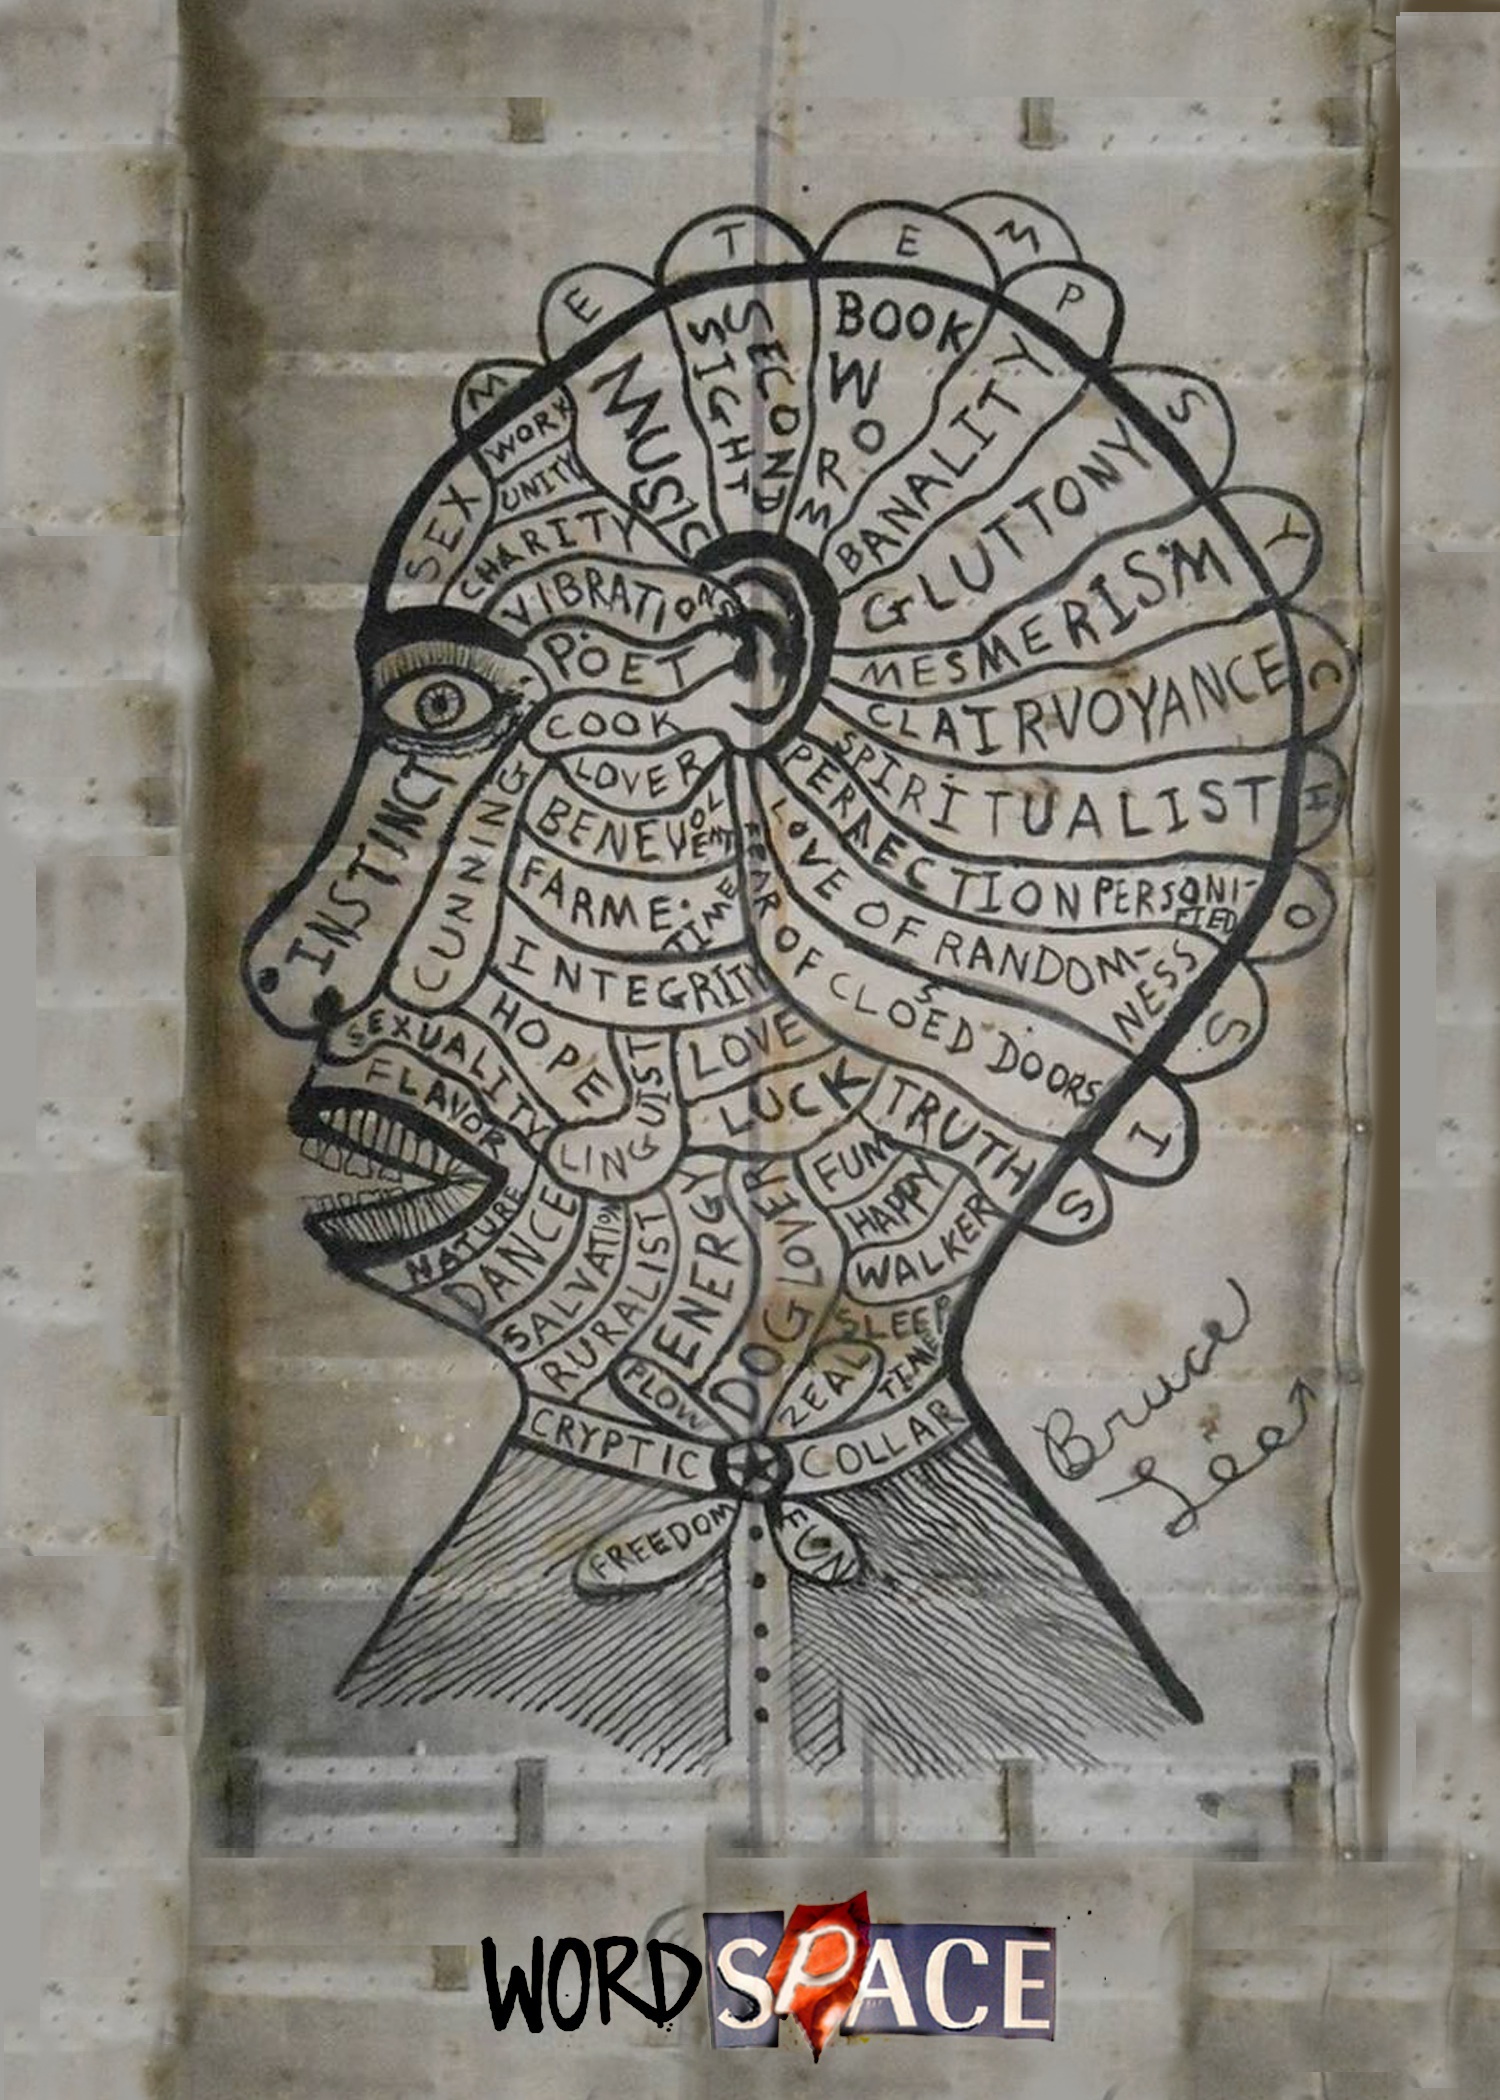 METEMPSYCHOSIS
SEX
WORK
UNITY
CHARITY
VIBRATIONS
MUSIC
SECOND
SIGHT
BOOK
WORM
BANALITY
GLUTTONY
MESMERISM
CLAIRVOYANCE
SPIRITUALIST
PERFECTION PERSONI-
FIED
LOVE OF RANDOM-
NESS
FEAR OF CLOSED DOORS
POET
COOK
LOVER
BENEVOLENT
FARME·
TIME
INTEGRITY
INSTINCT
CUNNING
HOPE
SEXUALITY
FLAVOR
LINGUIST
LOVE
LUCK
TRUTH
FUM
HAPPY
WALKER
SLEEP
TIME
ZEAL
DOG LOVER
ENERGY
FLOW
RURALIST
SALVATION
DANCE
NATURE
CRYPTIC COLLAR
FREEDOM FUN
Bruce
Lee
WORDSPACE